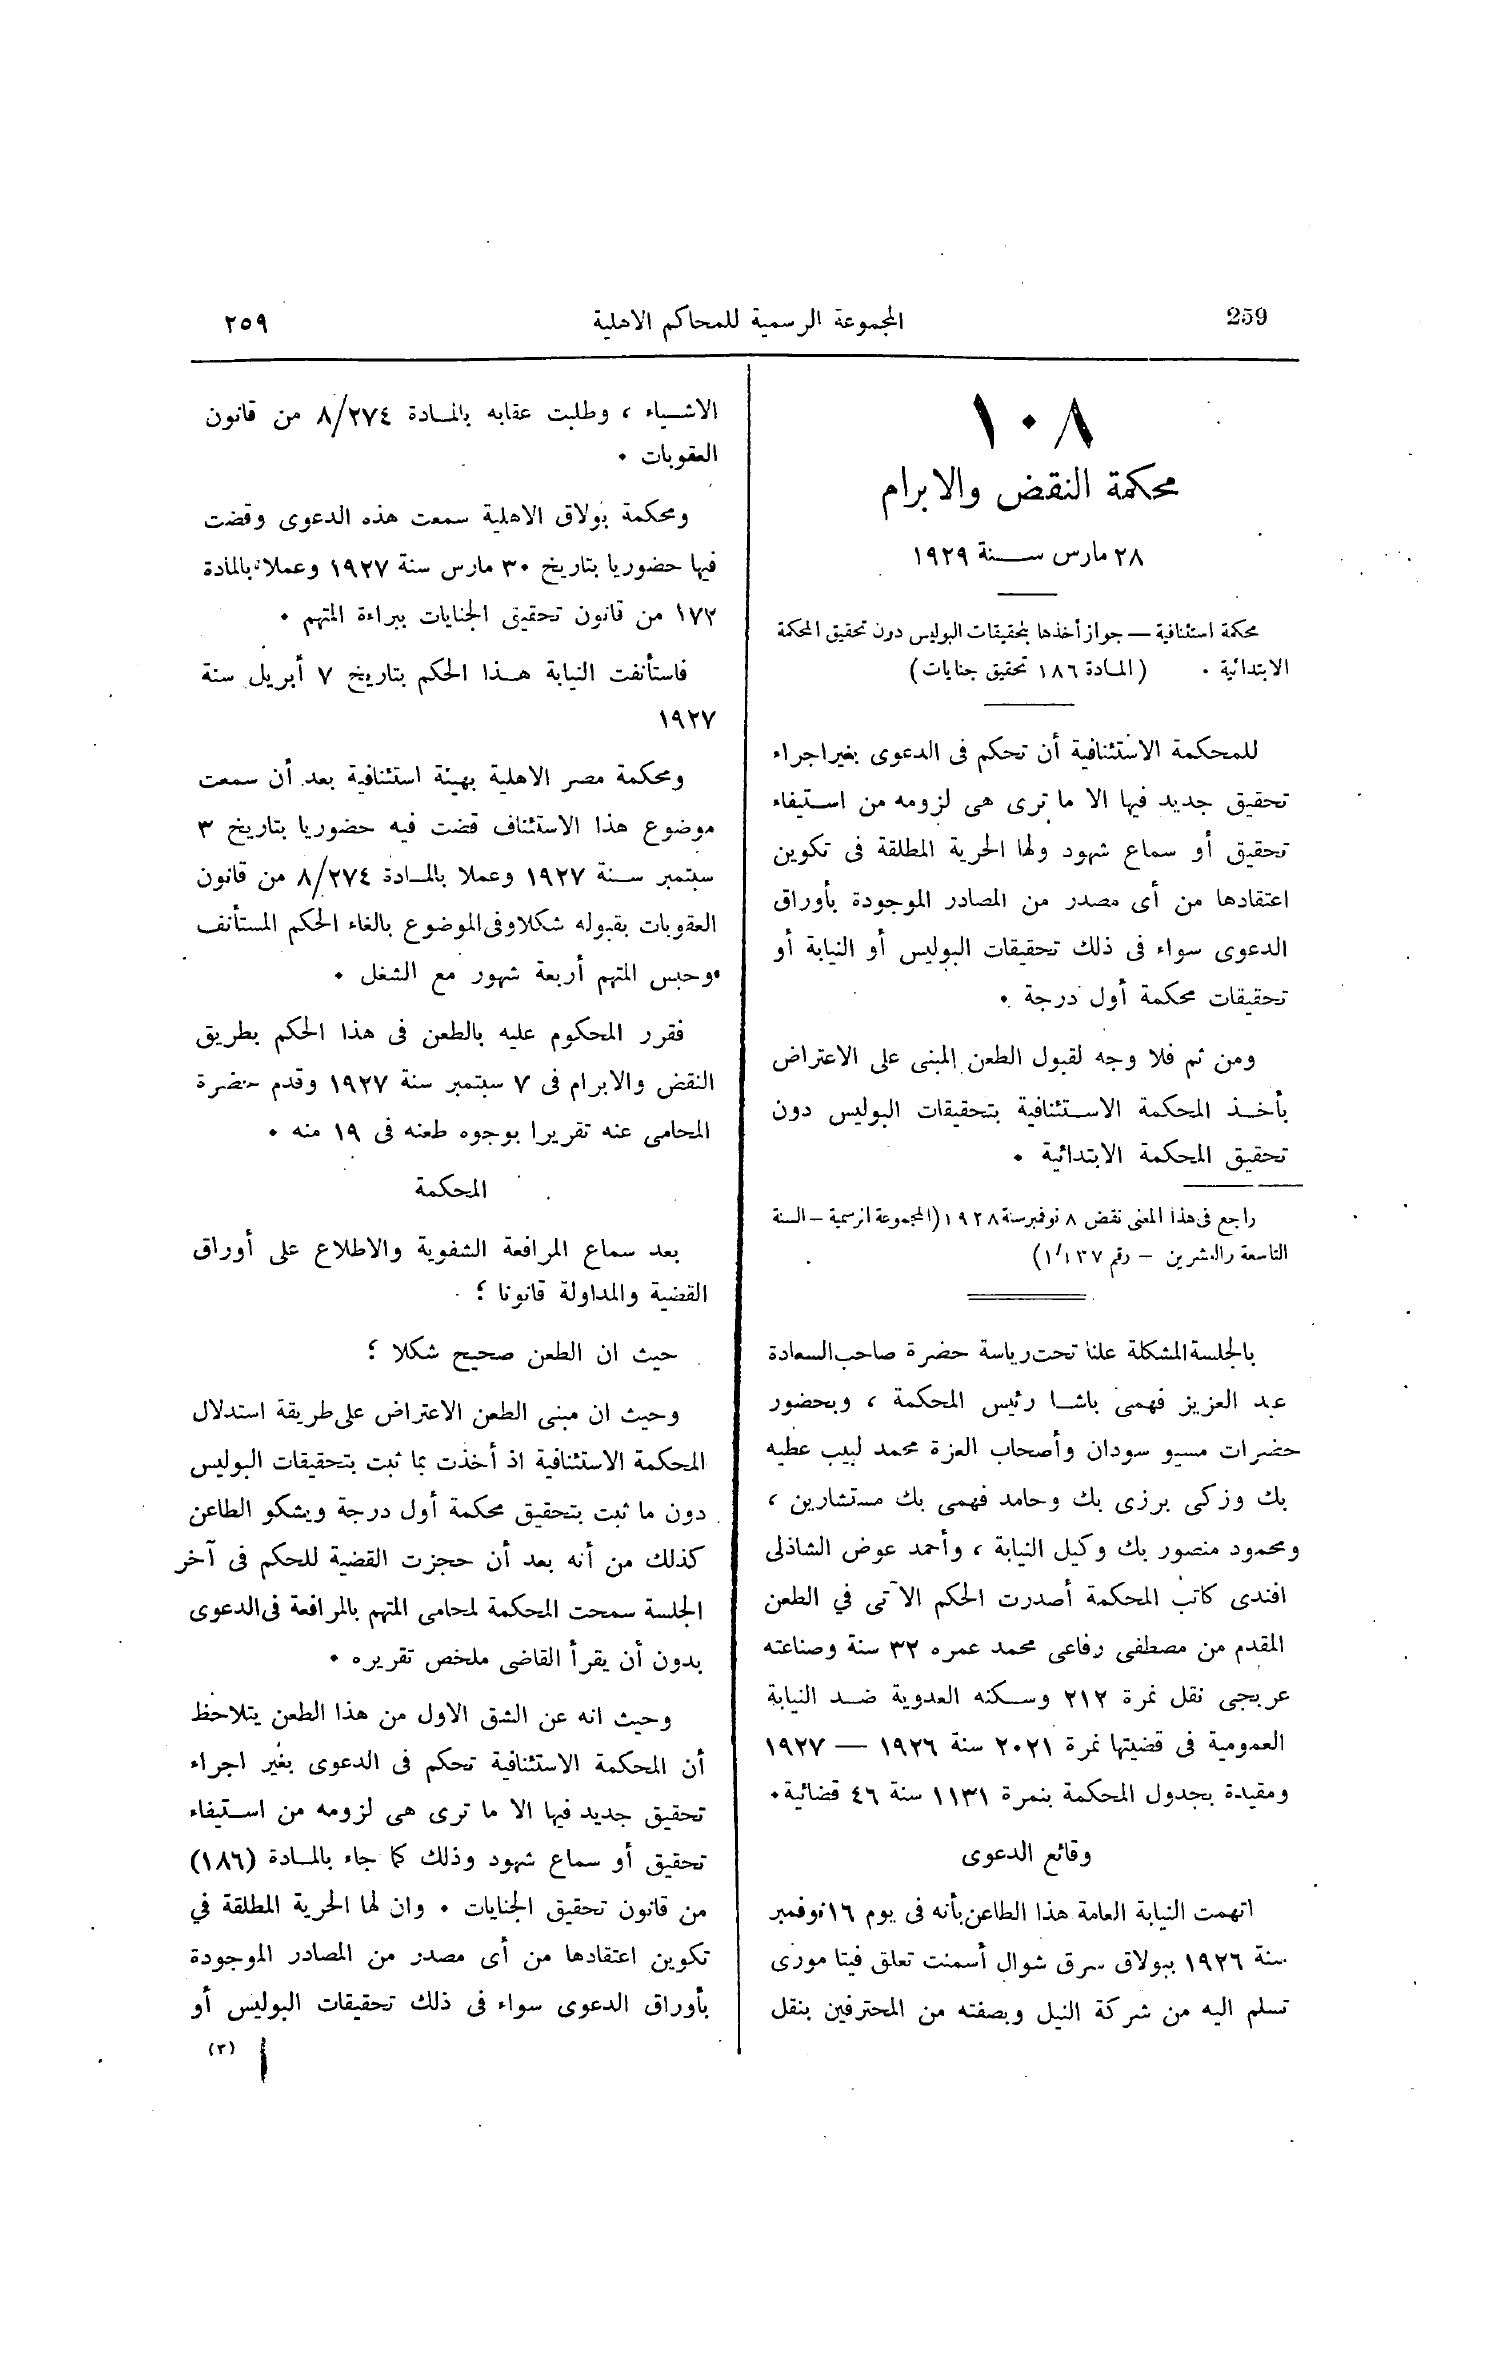 259
المجموعة الرسمية للمحاكم الاهلية
٢٥٩
١٠٨
محكمة النقض والابرام
٢٨ مارس سنة ١٩٢٩
محكمة استئنافية — جواز أخذها بتحقيقات البوليس دون تحقيق المحكمة
الابتدائية . (المادة ١٨٦ تحقيق جنايات)
للمحكمة الاستئنافية أن تحكم فى الدعوى بغير اجراء
تحقيق جديد فيها الا ما ترى هى لزومه من استيفاء
تحقيق أو سماع شهود ولها الحرية المطلقة فى تكوين
اعتقادها من أى مصدر من المصادر الموجودة بأوراق
الدعوى سواء فى ذلك تحقيقات البوليس أو النيابة أو
تحقيقات محكمة أول درجة .
ومن ثم فلا وجه لقبول الطعن المبنى على الاعتراض
بأخذ المحكمة الاستئنافية بتحقيقات البوليس دون
تحقيق المحكمة الابتدائية .
راجع فى هذا المعنى نقض ٨ نوفمبر سنة ١٩٢٨ (المجموعة الرسمية – السنة
التاسعة والعشرين – رقم ١/١٣٧)
بالجلسة المشكلة علنا تحت رياسة حضرة صاحب السعادة
عبد العزيز فهمى باشا رئيس المحكمة ، وبحضور
حضرات مسيو سودان وأصحاب العزة محمد لبيب عطيه
بك وزكى برزى بك وحامد فهمى بك مستشارين ،
ومحمود منصور بك وكيل النيابة ، وأحمد عوض الشاذلى
افندى كاتب المحكمة أصدرت الحكم الآتى في الطعن
المقدم من مصطفى رفاعى محمد عمره ٣٢ سنة وصناعته
عربجى نقل نمرة ٢١٢ وسكنه العدوية ضد النيابة
العمومية فى قضيتها نمرة ٢٠٢١ سنة ١٩٢٦ — ١٩٢٧
ومقيدة بجدول المحكمة بنمرة ١١٣١ سنة ٤٦ قضائية .
وقائع الدعوى
اتهمت النيابة العامة هذا الطاعن بأنه فى يوم ١٦ نوفمبر
سنة ١٩٢٦ ببولاق سرق شوال أسمنت تعلق فيتا مورى
تسلم اليه من شركة النيل وبصفته من المحترفين بنقل
الاشياء ، وطلبت عقابه بالمادة ٨/٢٧٤ من قانون
العقوبات .
ومحكمة بولاق الاهلية سمعت هذه الدعوى وقضت
فيها حضوريا بتاريخ ٣٠ مارس سنة ١٩٢٧ وعملا بالمادة
١٧٢ من قانون تحقيق الجنايات ببراءة المتهم .
فاستأنفت النيابة هذا الحكم بتاريخ ٧ أبريل سنة
١٩٢٧
ومحكمة مصر الاهلية بهيئة استئنافية بعد أن سمعت
موضوع هذا الاستئناف قضت فيه حضوريا بتاريخ ٣
سبتمبر سنة ١٩٢٧ وعملا بالمادة ٨/٢٧٤ من قانون
العقوبات بقبوله شكلا وفى الموضوع بالغاء الحكم المستأنف
وحبس المتهم أربعة شهور مع الشغل .
فقرر المحكوم عليه بالطعن فى هذا الحكم بطريق
النقض والابرام فى ٧ سبتمبر سنة ١٩٢٧ وقدم حضرة
المحامى عنه تقريرا بوجوه طعنه فى ١٩ منه .
المحكمة
بعد سماع المرافعة الشفوية والاطلاع على أوراق
القضية والمداولة قانونا ؛
حيث ان الطعن صحيح شكلا ؛
وحيث ان مبنى الطعن الاعتراض على طريقة استدلال
المحكمة الاستئنافية اذ أخذت بما ثبت بتحقيقات البوليس
دون ما ثبت بتحقيق محكمة أول درجة ويشكو الطاعن
كذلك من أنه بعد أن حجزت القضية للحكم فى آخر
الجلسة سمحت المحكمة لمحامى المتهم بالمرافعة فى الدعوى
بدون أن يقرأ القاضى ملخص تقريره .
وحيث انه عن الشق الاول من هذا الطعن يتلاحظ
أن المحكمة الاستئنافية تحكم فى الدعوى بغير اجراء
تحقيق جديد فيها الا ما ترى هى لزومه من استيفاء
تحقيق أو سماع شهود وذلك كما جاء بالمادة (١٨٦)
من قانون تحقيق الجنايات . وان لها الحرية المطلقة في
تكوين اعتقادها من أى مصدر من المصادر الموجودة
بأوراق الدعوى سواء فى ذلك تحقيقات البوليس أو
(٣)